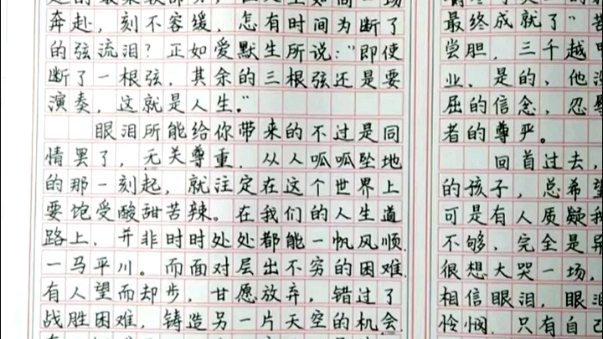 奔赴，刻不容缓，怎有时间为断了
的弦流泪？正如爱默生所说："即使
断了一根弦，其余的三根弦还是要
演奏，这就是人生。"
眼泪所能给你带来的不过是同
情罢了，无关尊重。从人呱呱坠地
的那一刻起，就注定在这个世界上
要饱受酸甜苦辣。在我们的人生道
路上，并非时时处处都能一帆风顺
一马平川。而面对层出不穷的困难
有人望而却步，甘愿放弃，错过了
战胜困难，铸造另一片天空的机会
最终成就了"苦
尝胆，三千越甲
业。是的，他没
屈的信念，忍辱
者的尊严。
回首过去，
的孩子，总希望
可是有人质疑我
不够，完全是异
很想大哭一场，
相信眼泪，眼泪
怜悯。只有自己